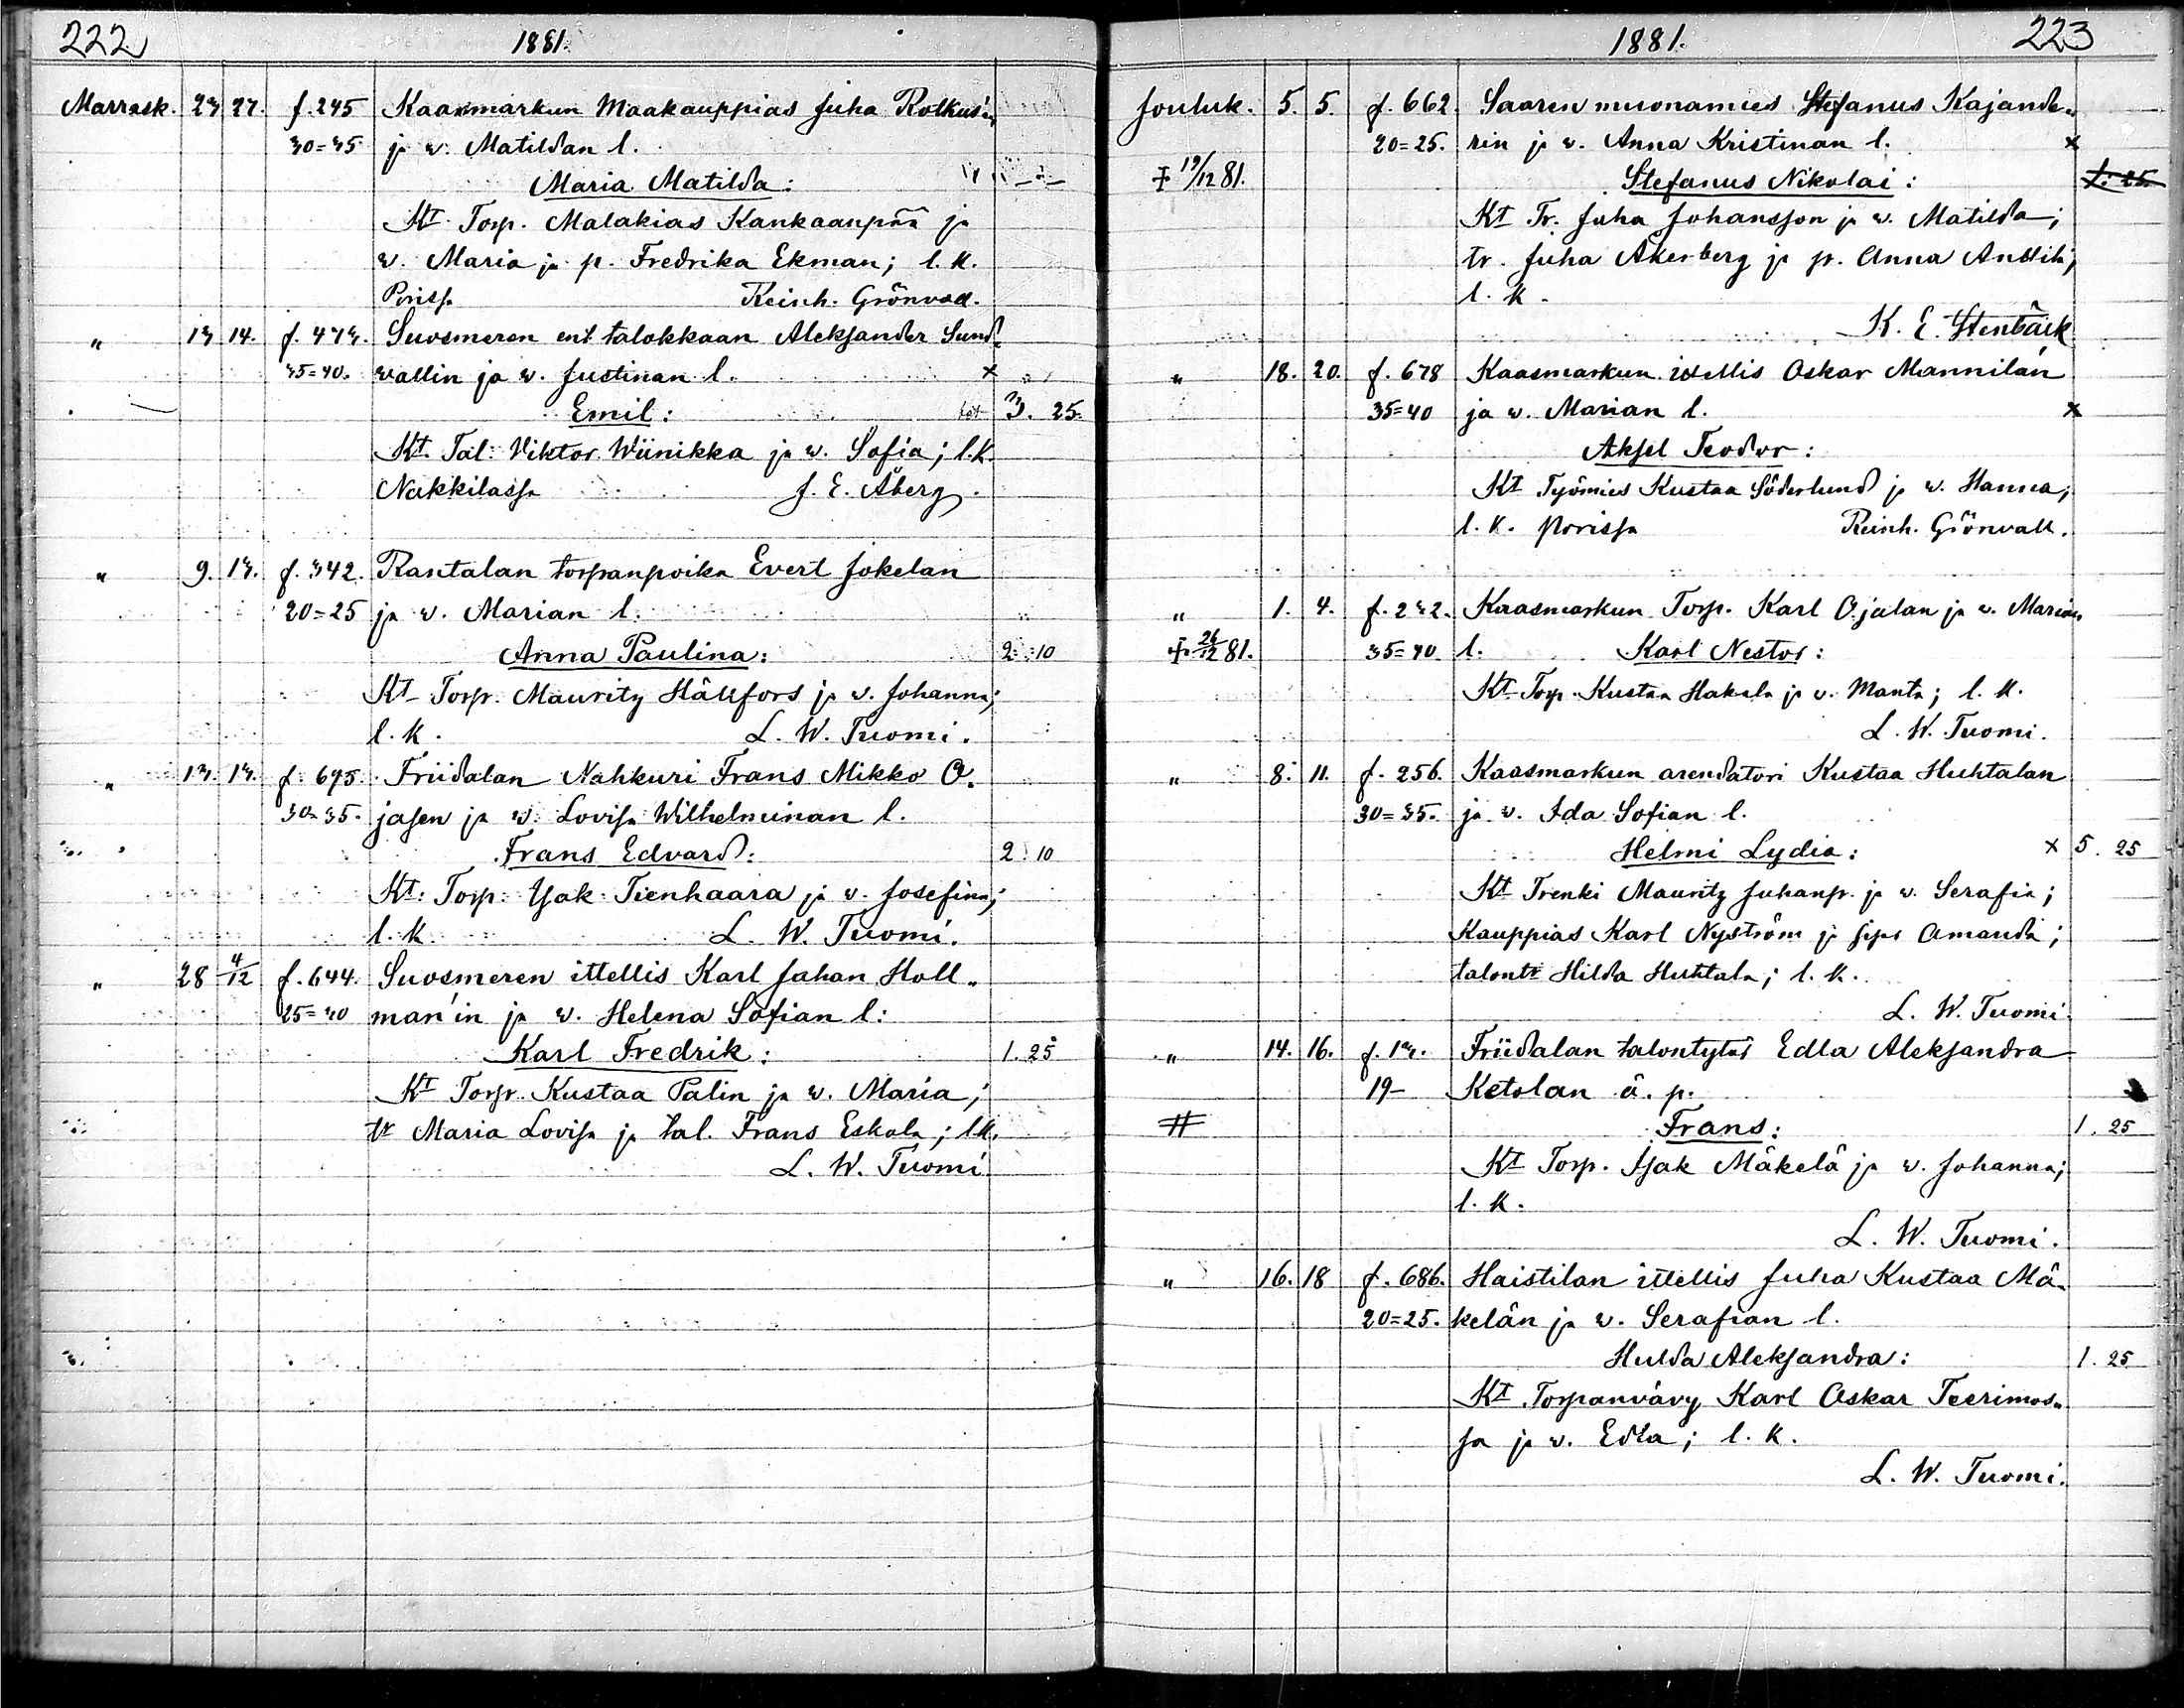 222 1881.
Marrask. 23 27. f. 245 Kaasmarkun Maakauppias Juha Rotkus'in
30=35 ja w. Matildan l.
Maria Matilda:
Kt. Torp. Malakias Kankaanpää ja
w. Maria ja p. Fredrika Ekman; l. k.
Porissa Reinh. Grönvall.
" 13 14. f. 473. Suosmeren ent talokkaan Aleksander Sund-
35=40. wallin ja w. Justinan l. x
Emil: 3. 25.
Kt. Tal. Viktor Wiinikka ja w. Sofia; l.k.
Nakkilassa J. E. Åberg.
" 9. 13. f. 342. Rantalan torpanpoika Evert Jokelan
20=25 ja w. Marian l.
Anna Paulina: 2. 10
Kt Torp. Mauritz Hällfors ja w. Johanna;
l. k. L. W. Tuomi.
" 13. 13. f. 695. Friidalan Nahkuri Frans Mikko O.
30=35. jasen ja w. Lovisa Wilhelminan l.
Frans Edvard: 2. 10
Kt. Torp. Isak Tienhaara ja w. Josefina;
l. k. L. W. Tuomi.
" 28 4/12 f. 644. Suosmeren ittellis Karl Johan Holl-
25=40 man'in ja w. Helena Sofian l:
Karl Fredrik: 1. 25
Kt Torp. Kustaa Palin ja w. Maria;
tr Maria Lovisa ja tal. Frans Eskola; l.k.
L. W. Tuomi.
1881. 223
Jouluk. 5. 5. f. 662. Saaren muonamies Stefanus Kajande-
20=25. rin ja w. Anna Kristinan l. x
‡ 19/12 81. Stefanus Nikolai: 1. 25
Kt Tr. Juha Johansson ja w. Matilda;
tr. Juha Åkerberg ja p. Anna Anttila;
l. k.
K. E. Stenbäck
" 18. 20. f. 678 Kaasmarkun ittellis Oskar Mannilan
35=40 ja w. Marian l. x
Aksel Teodor:
Kt Työmies Kustaa Söderlund ja w. Hanna;
l. k. Porissa Reinh. Grönvall.
" 1. 4. f. 232. Kaasmarkun Torp. Karl Ojalan ja w. Marian
‡ 26/12 81. 35=40. l. Karl Nestor:
Kt Torp. Kustaa Hakala ja w. Manta; l. k.
L. W. Tuomi.
" 8. 11. f. 256. Kaasmarkun arendatori Kustaa Huhtalan
30=35. ja w. Ida Sofian l.
Helmi Lydia: x 5. 25
Kt Trenki Mauritz Juhanp. ja w. Serafia;
Kauppias Karl Nyström ja Amanda;
talontr Hilda Huhtala; l. k.
L. W. Tuomi.
" 14. 16. f. 13. Friidalan talontytär Edla Aleksandra
19- Ketolan ä. p.
# Frans: 1. 25
Kt Torp. Isak Mäkelä ja w. Johanna;
l. k.
L. W. Tuomi.
" 16. 18 f. 686. Haistilan ittellis Juha Kustaa Mä-
20=25. kelän ja w. Serafian l.
Hulda Aleksandra: 1. 25
Kt Torpanvävy Karl Oskar Teerimos-
sa ja w. Edla; l. k.
L. W. Tuomi.